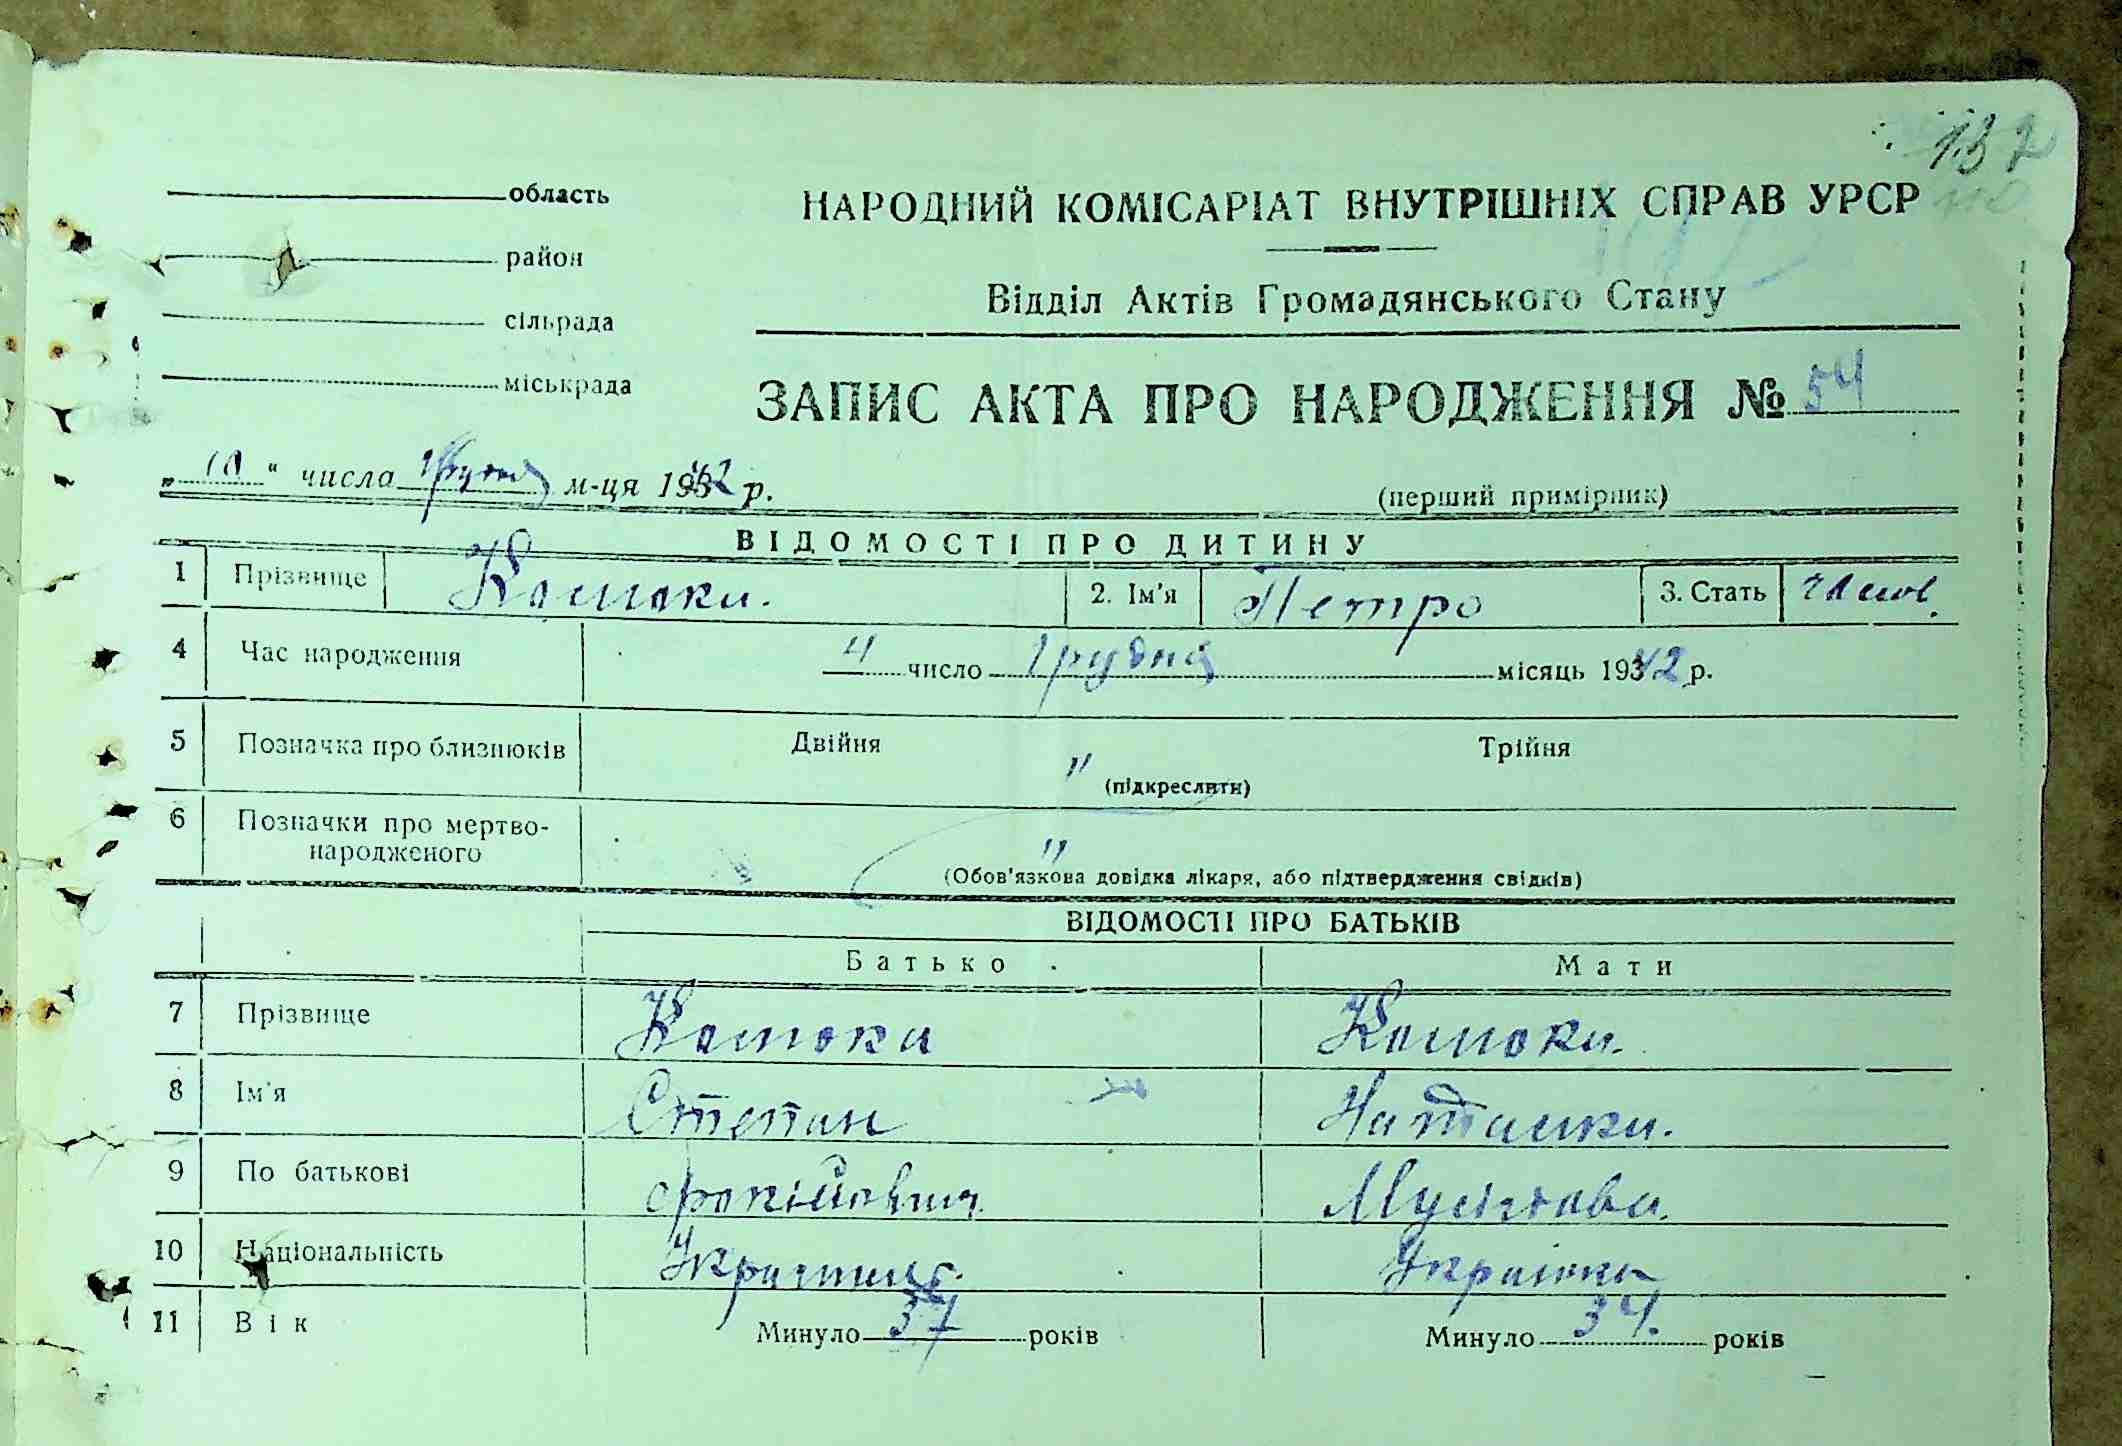 132
область
НАРОДНИЙ КОМІСАРІАТ ВНУТРІШНІХ СПРАВ УРСР
район
Відділ Актів Громадянського Стану
сільрада
міськрада
ЗАПИС АКТА ПРО НАРОДЖЕННЯ № 54
„10“ числа грудня м-ця 1942 р.
(перший примірник)
ВІДОМОСТІ ПРО ДИТИНУ
1 Прізвище 2. Ім'я Петро 3. Стать чолов.
4 Час народження 4 число грудня місяць 1942 р.
5 Позначка про близнюків Двійня " Трійня
(підкреслити)
6 Позначки про мертво-
народженого "
(Обов'язкова довідка лікаря, або підтвердження свідків)
ВІДОМОСТІ ПРО БАТЬКІВ
Батько Мати
7 Прізвище
8 Ім'я Степан Наташка.
9 По батькові
10 Національність Українка
11 Вік Минуло 37 років Минуло 34. років